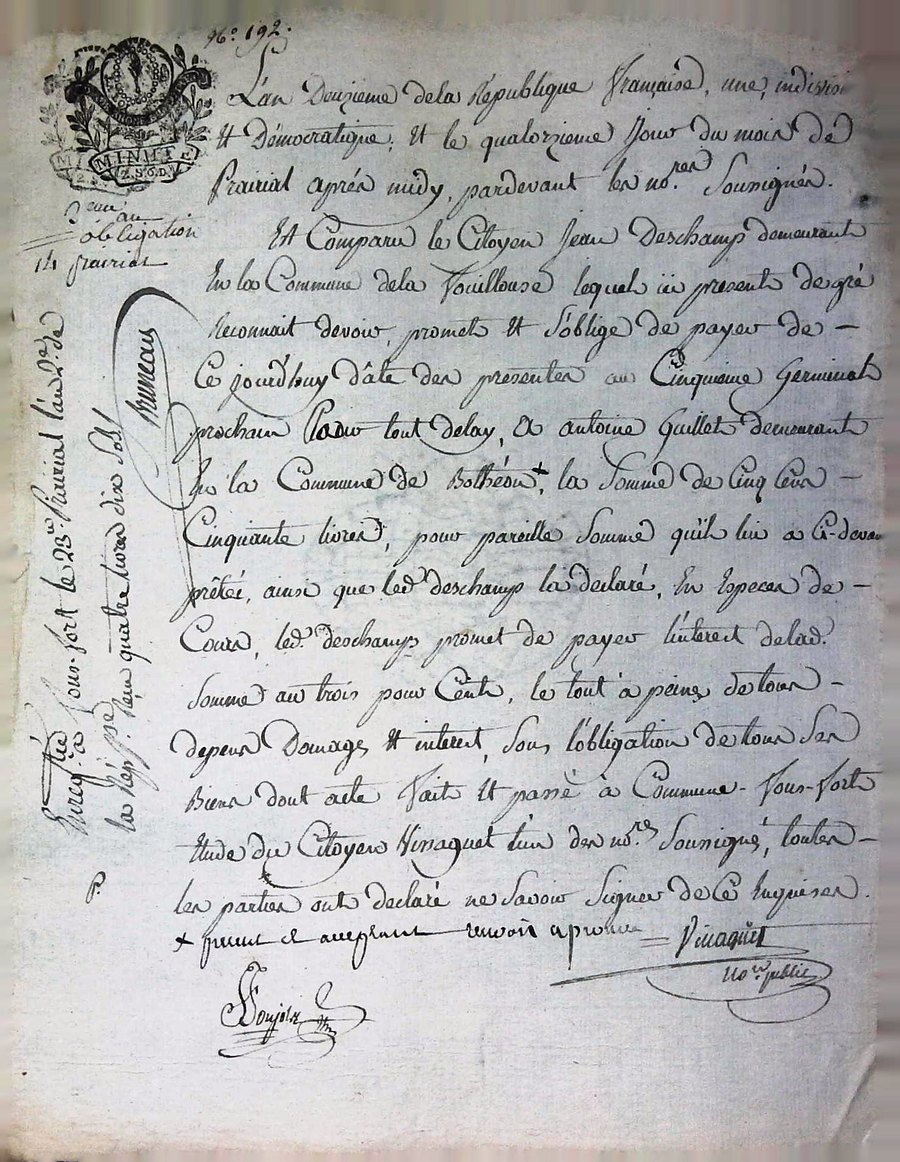 N.o 192.
MINUTE
2. S. 6 D.
L'an Deuxieme dela République Française, une, indivisi
& Démocratique, & le quatorzieme Jour du mois de
Prairial aprés midy, pardevant les no.res Soussignés.
obligation
14 prairial
Est Comparu le Citoyen Jean Deschamps demeurant
En la Commune dela Fouillouse lequel ici present de gré
Reconnait devoir, promet & s'oblige de payer de —
Ce jourd'huy dâte des presentes au Cinquieme Germinal
prochain Pour tout delay, a antoine Guillet demeurant
En la Commune de Bothéon +, la Somme de Cinq Cens —
Cinquante livres, pour pareille Somme qu'il lui a Ci-devan
prêtée, ainsi que led. deschamps l'a declaré, En Especes de —
Cours, led. deschamps promet de payer l'interest delad.
Somme au trois pour Cent, le tout à peine de tous —
depens Domages & interest, Sous l'obligation de tous Ses
Biens dont acte Fait & passé à Commune-Fons-Fort
Etude du Citoyen Vissaguet l'un des no.res Soussigné, toutes —
les parties ont declaré ne Savoir Signer de Ce Enquises.
+ present et acceptant renvoi aprouvé = Vissaguet
no.re public
Enreg.tré à Fons-fort le 23.e Prairial l'an 2.e de
la Rep. Reçu quatre livres dix Sols